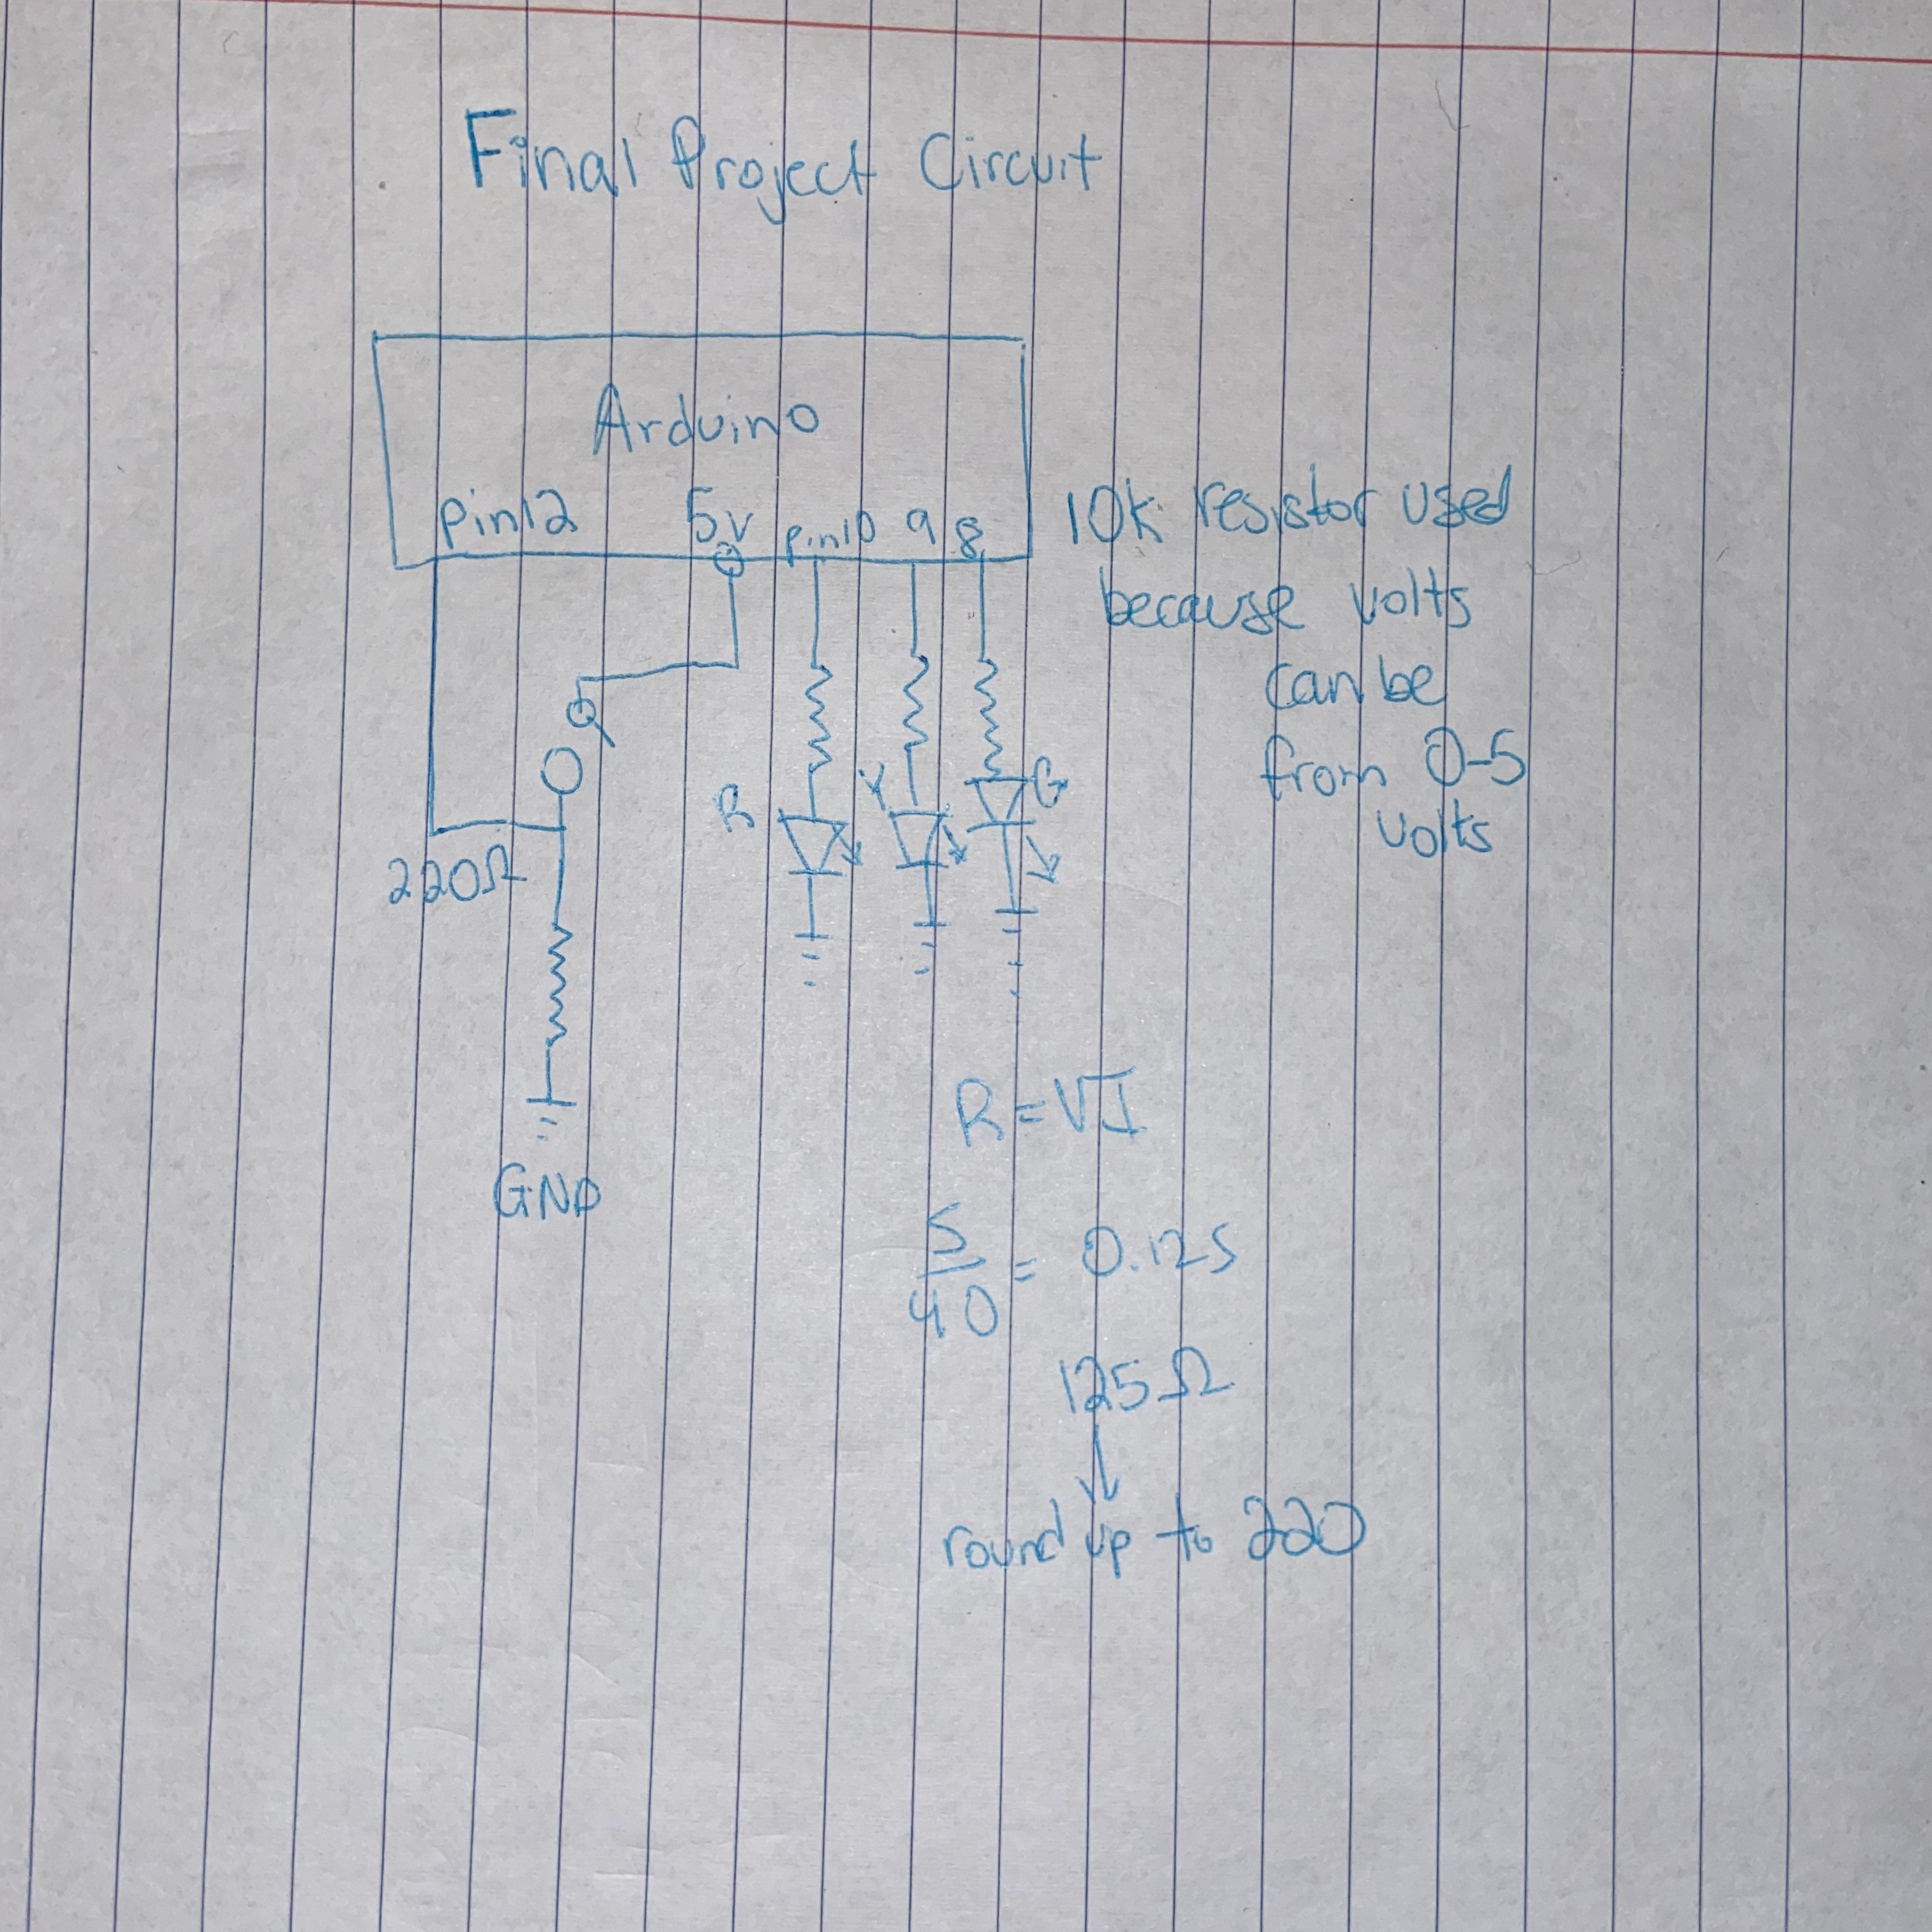 Final Project Circuit
Arduino
pin12 5v pin10 9 8
10k resistor used
because volts
can be
from 0-5
volts
R Y G
220Ω
GND
R=VI
5/40 = 0.125
125Ω
↓
round up to 220